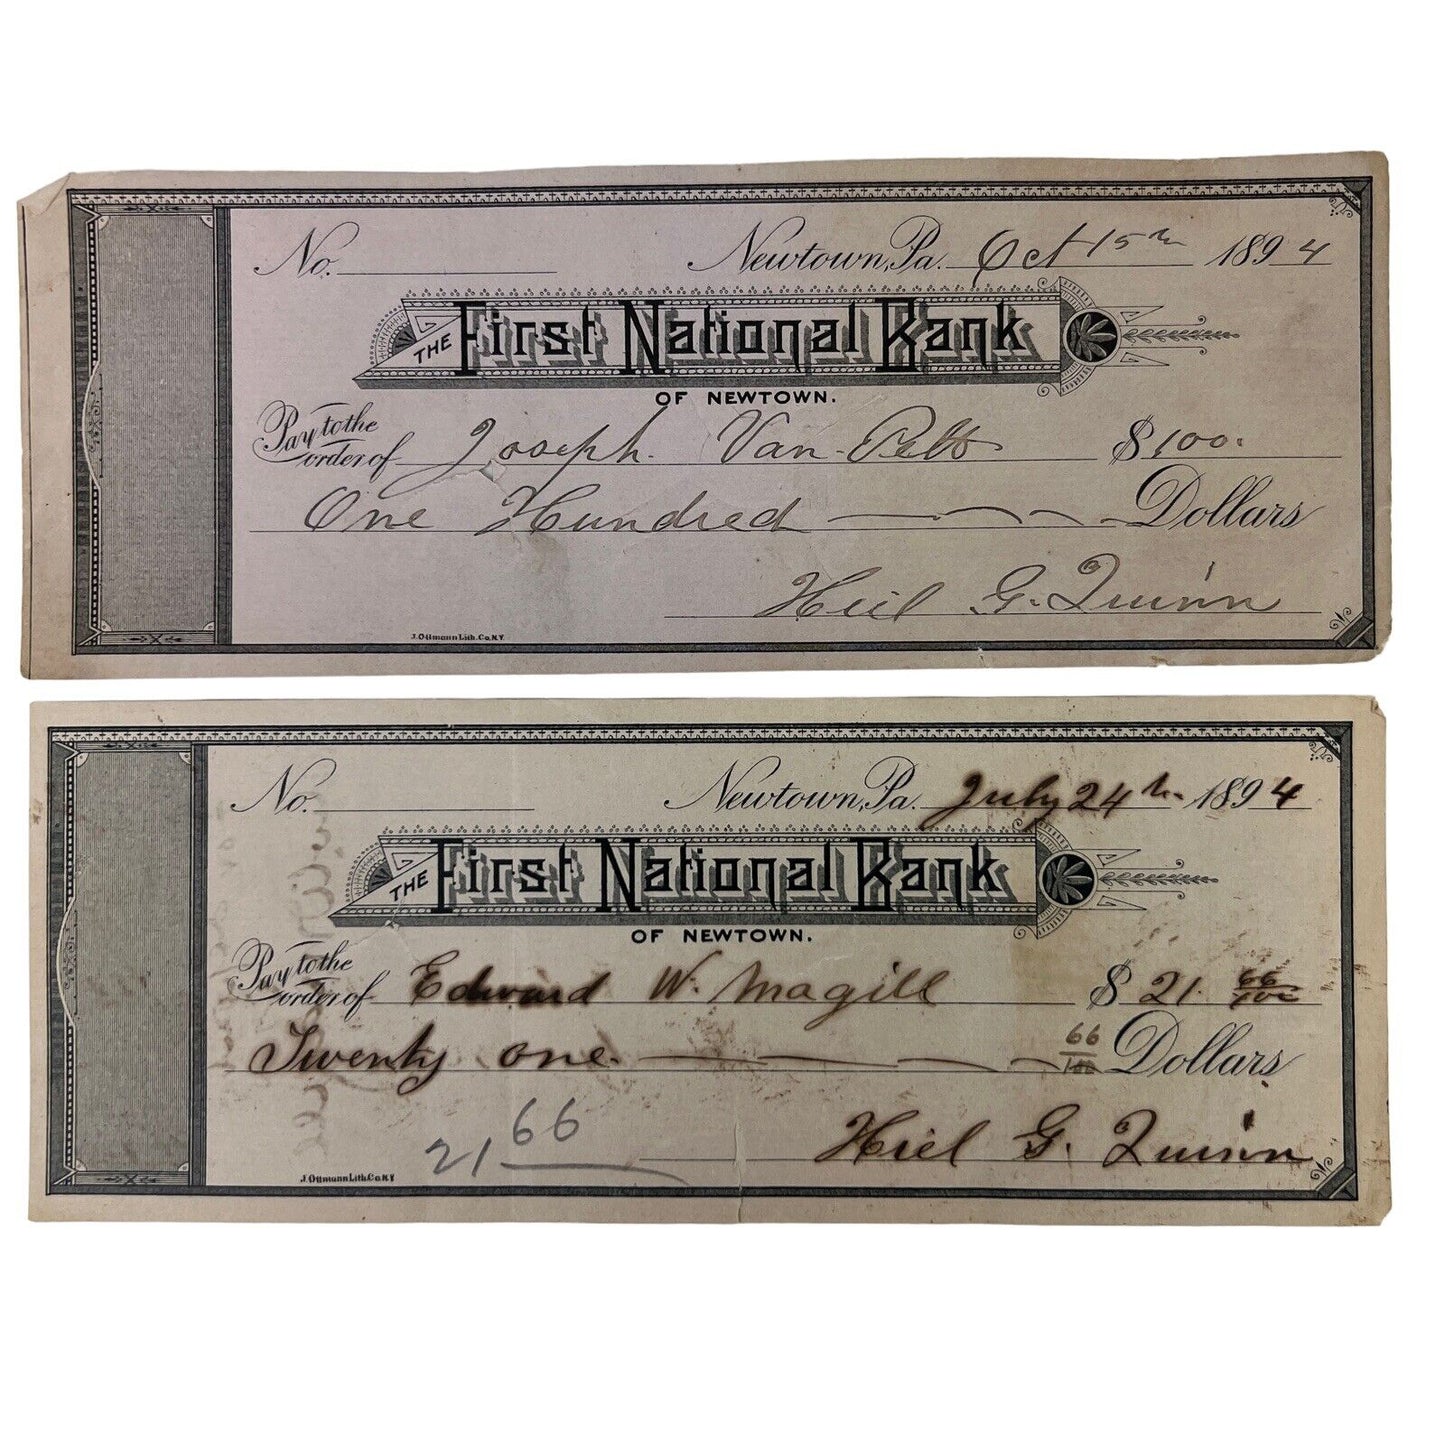 No. Newtown, Pa. Oct 15th 1894
THE First National Bank
OF NEWTOWN.
Pay to the order of Joseph Van Pelt $100.
One Hundred Dollars
Hiel G. Quinn
J. Ottmann Lith. Co. N.Y.
No. Newtown, Pa. July 24th 1894
THE First National Bank
OF NEWTOWN.
Pay to the order of Edward W. Magill $21. 66/100
Twenty one 66/100 Dollars
21 66
Hiel G. Quinn
J. Ottmann Lith. Co. N.Y.